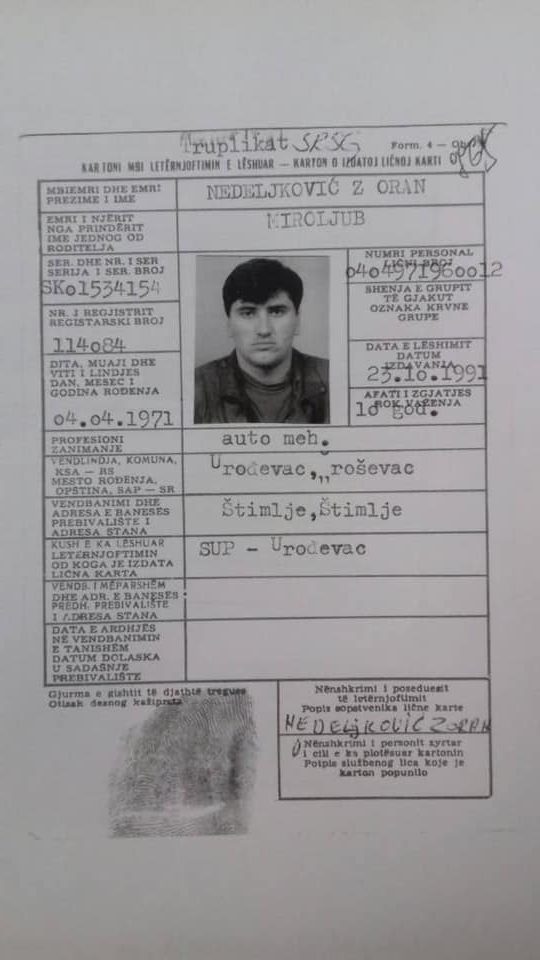 Truplikat SRSG
Form. 4 —
KARTONI MBI LETËRNJOFTIMIN E LËSHUAR — KARTON O IZDATOJ LIČNOJ KARTI
MBIEMRI DHE EMRI
PREZIME I IME
NEDELJKOVIĆ Z ORAN
EMRI I NJËRIT
NGA PRINDËRIT
IME JEDNOG OD
RODITELJA
MIROLJUB
SER. DHE NR. I SER
SERIJA I SER. BROJ
SKo1534154
NUMRI PERSONAL
LIČNI BROJ
o4o4971960012
SHENJA E GRUPIT
TË GJAKUT
OZNAKA KRVNE
GRUPE
NR. I REGJISTRIT
REGISTARSKI BROJ
114o84
DATA E LËSHIMIT
DATUM
IZDAVANJA
23.1o.1991
DITA, MUAJI DHE
VITI I LINDJES
DAN, MESEC I
GODINA ROĐENJA
o4.o4.1971
AFATI I ZGJATJES
ROK VAŽENJA
1o god.
PROFESIONI
ZANIMANJE
auto meh.
VENDLINDJA, KOMUNA,
KSA — RS
MESTO ROĐENJA,
OPŠTINA, SAP — SR
Uroševac,
VENDBANIMI DHE
ADRESA E BANESËS
PREBIVALIŠTE I
ADRESA STANA
Štimlje,Štimlje
KUSH E KA LËSHUAR
LETËRNJOFTIMIN
OD KOGA JE IZDATA
LIČNA KARTA
SUP - Uroševac
VENDB. I MËPARSHËM
DHE ADR. E BANESËS
PREDH. PREBIVALIŠTE
I ADRESA STANA
DATA E ARDHJËS
NË VENDBANIMIN
E TANISHËM
DATUM DOLASKA
U SADAŠNJE
PREBIVALIŠTE
Gjurma e gishtit të djathtë tregues
Otisak desnog kažiprsta
Nënshkrimi i poseduesit
të letërnjoftimit
Potpis sopstvenika lične karte
NEDELJKOVIĆ ZORAN
Nënshkrimi i personit zyrtar
i cili e ka plotësuar kartonin
Potpis službenog lica koje je
karton popunilo